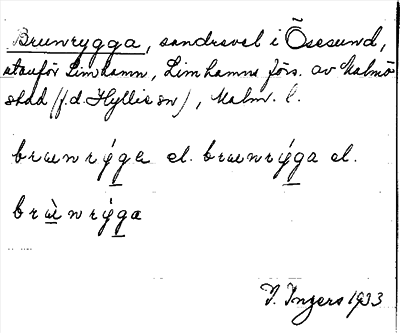 Brunrygga, sandrevel i Ösesund,
utanför Limhamn, Limhamns förs. av Malmö
stad (f.d. Hyllie sn), Malm. l.
brunrýga el. brunrýga el.
brùnrýga
I. Ingers 1933